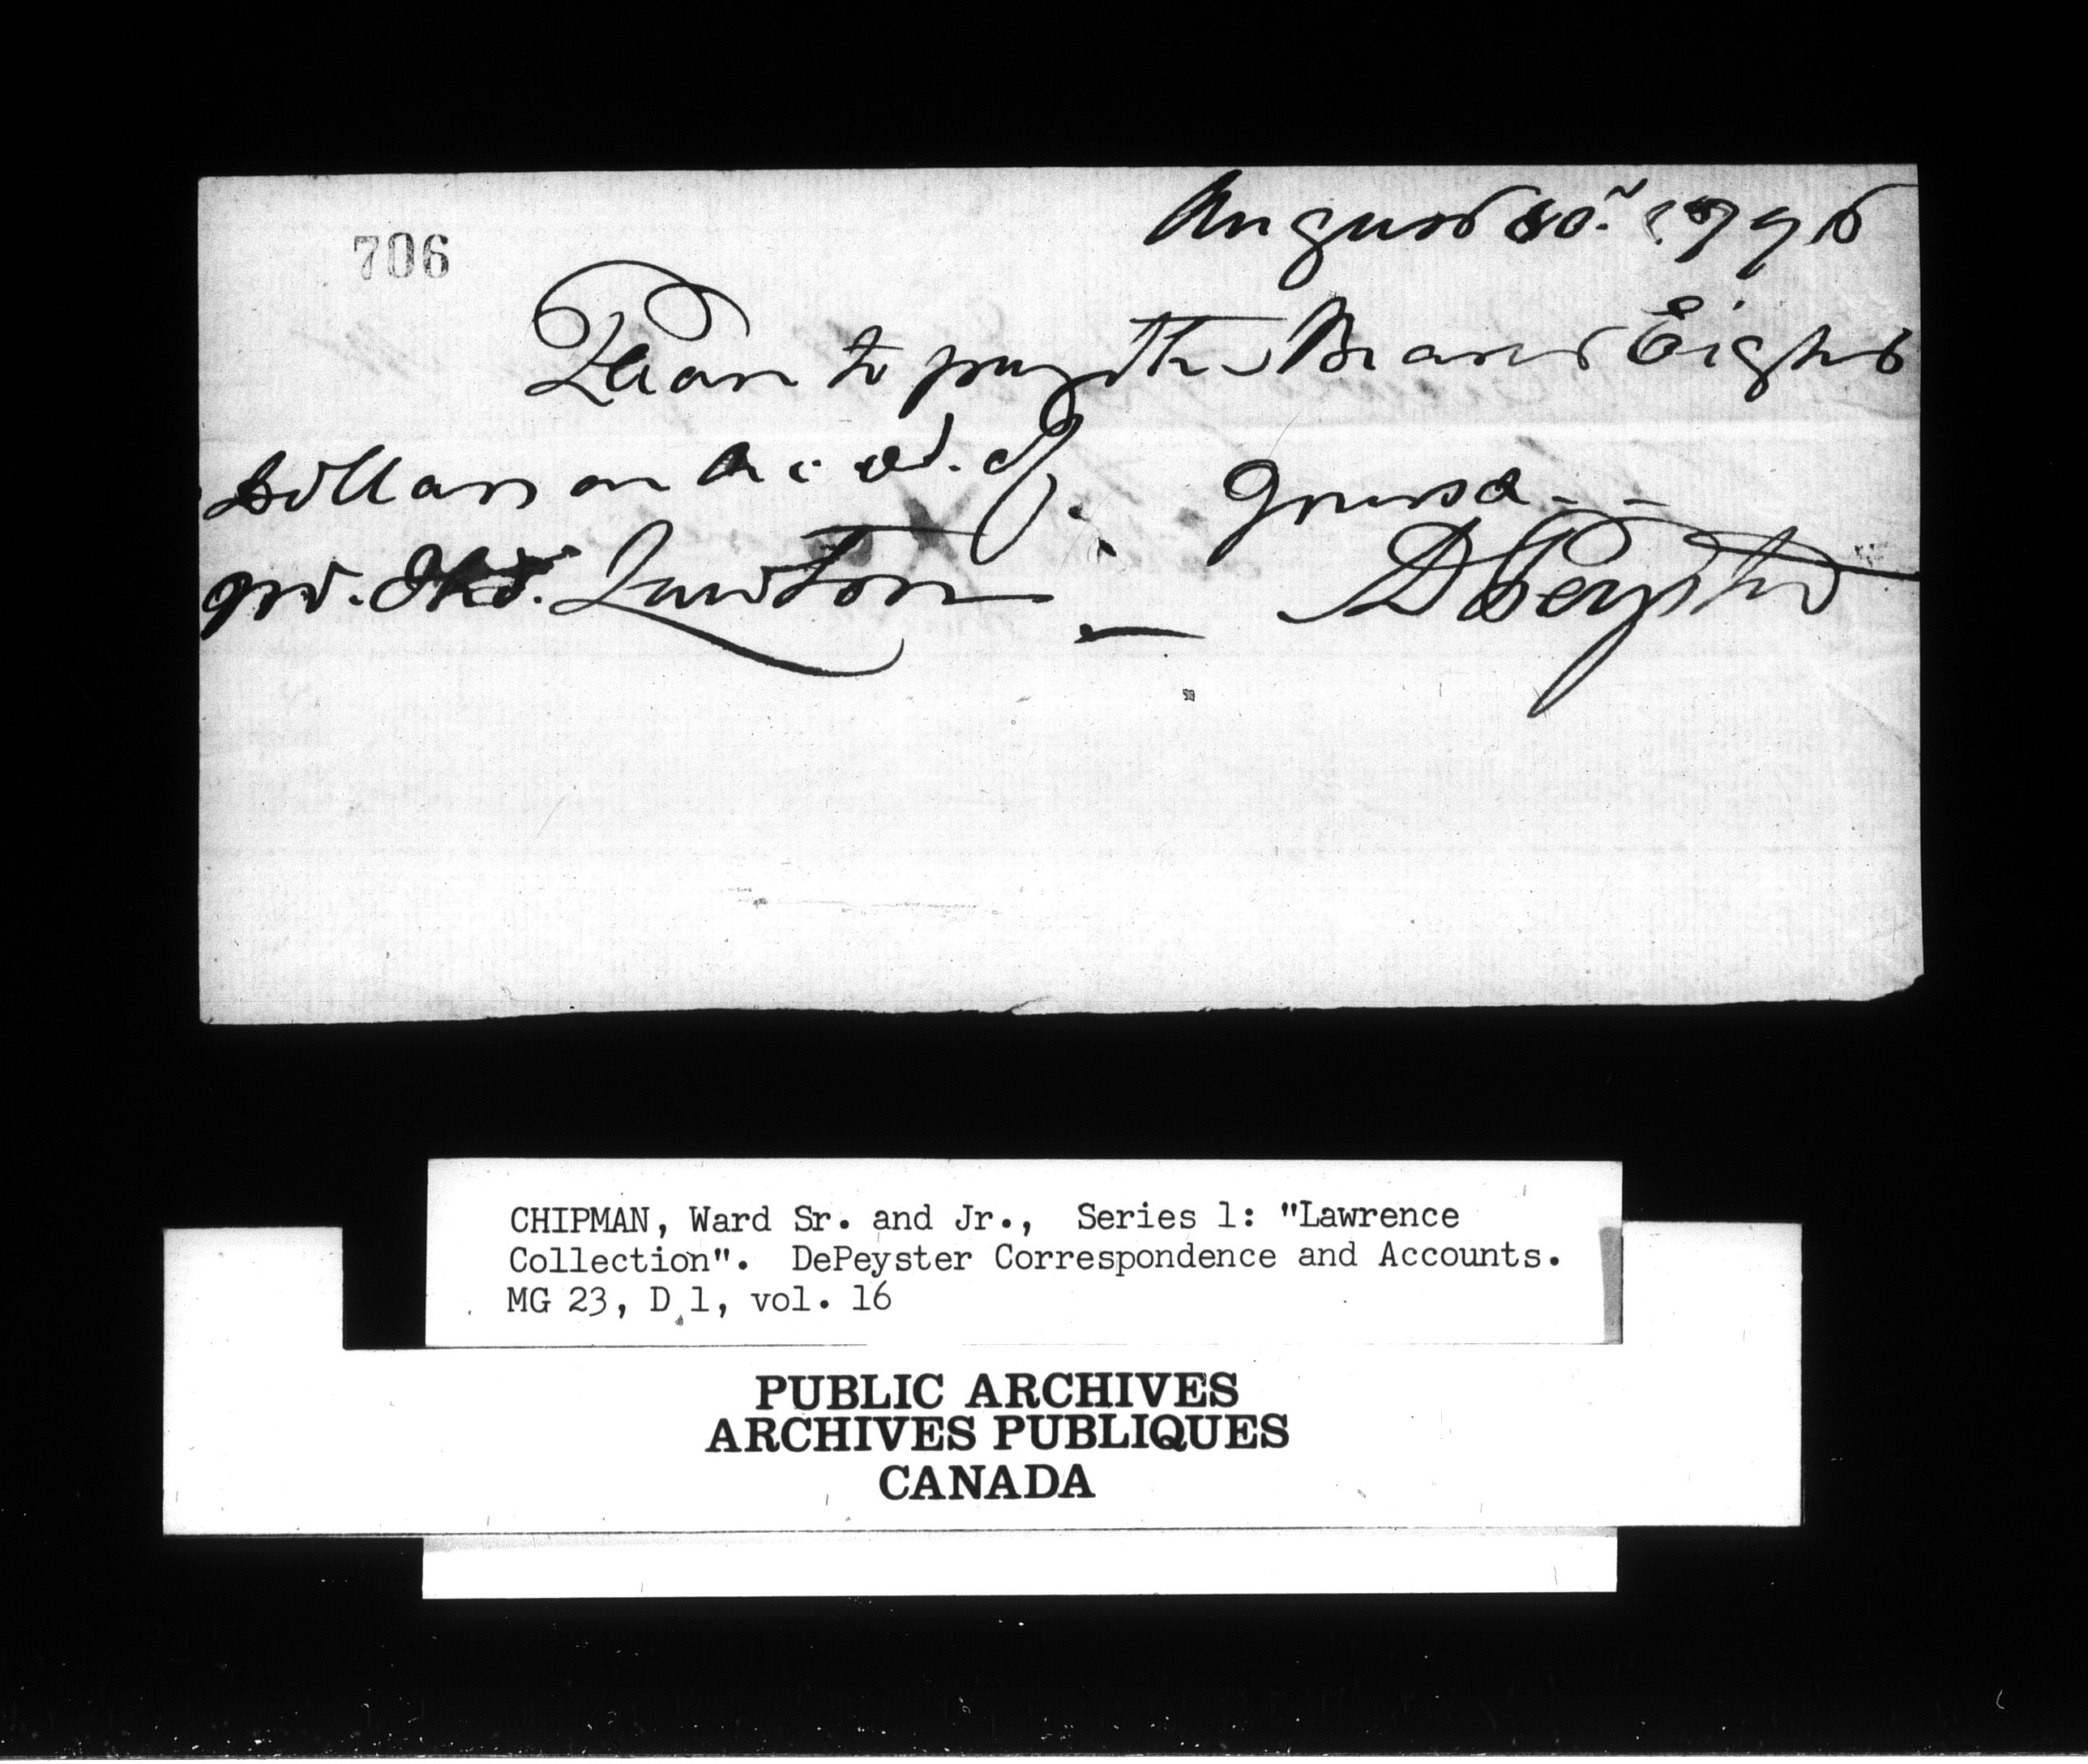 706
August 10. 1796
Pleas to pay the Bearer Eight
Dollars on Acct. of.
DPeyster
CHIPMAN, Ward Sr. and Jr., Series 1: "Lawrence
Collection". DePeyster Correspondence and Accounts.
MG 23, D 1, vol. 16
PUBLIC ARCHIVES
ARCHIVES PUBLIQUES
CANADA